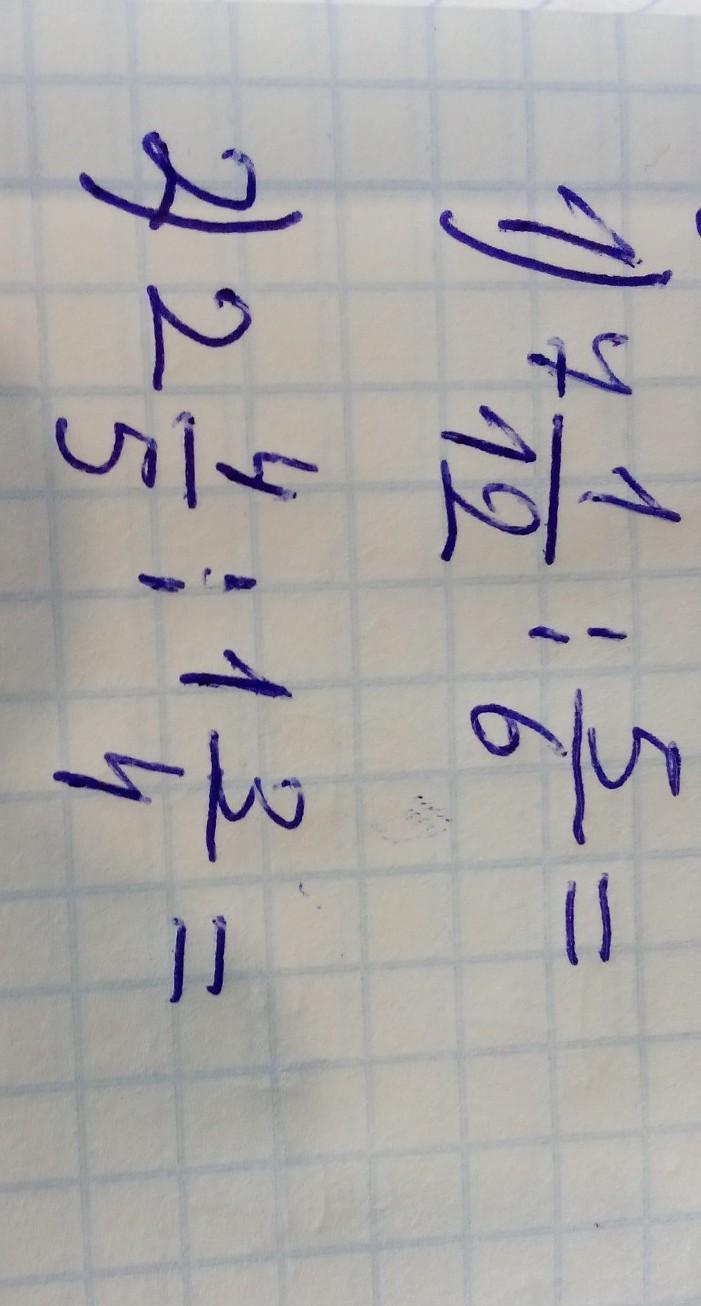 1) 7 1/12 : 5/6 =
2) 2 4/5 : 1 3/4 =